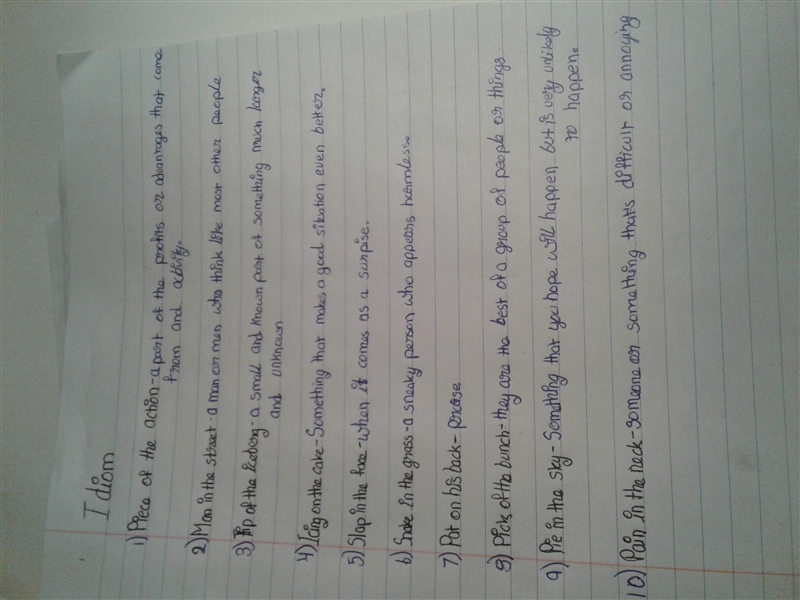 Idiom
1) Piece of the action - a part of the profits or advantages that come
from and activity.
2) Man in the street - a man or men who think like most other people
3) Tip of the iceberg - a small and known part of something much larger
and unknown
4) Icing on the cake - Something that makes a good sitution even better.
5) Slap in the face - when it comes as a surpise.
6) Snake in the grass - a sneaky person who appears harmless.
7) Pat on his back -
8) Picks of the bunch - they are the best of a group of people or things
9) Pie in the sky - Something that you hope will happen but is very unlikely
to happen.
10) Pain in the neck - someone or something that's difficult or annoying